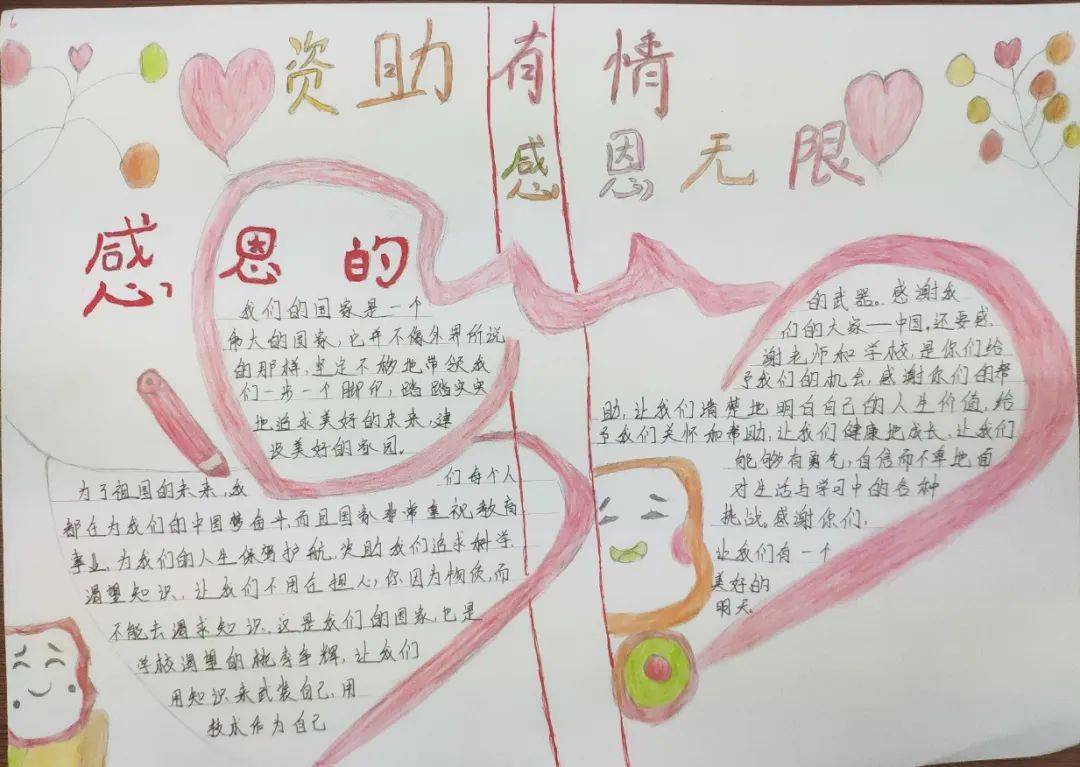 6
资助有情
感恩无限
感恩的
我们的国家是一个
伟大的国家，它并不像外界所说
的那样，坚定不移地带领我
们一步一个脚印，踏踏实实
地追求美好的未来，建
设美好的家园。
为了祖国的未来，我
们每个人
都在为我们的中国梦奋斗，而且国家非常重视教育
事业，为我们的人生保驾护航，资助我们追求科学
渴望知识，让我们不用在担心，你因为物质，而
不能去渴求知识，这是我们的国家，也是
学校渴望的桃李争辉，让我们
用知识来武装自己，用
技术作为自己
的武器。感谢我
们的大家——中国。还要感
谢老师和学校，是你们给
予我们的机会，感谢你们的帮
助，让我们清楚地明白自己的人生价值，给
予我们关怀和帮助，让我们健康地成长，让我们
能够有勇气，自信而不卑地面
对生活与学习中的各种
挑战。感谢你们，
让我们有一个
美好的
明天。